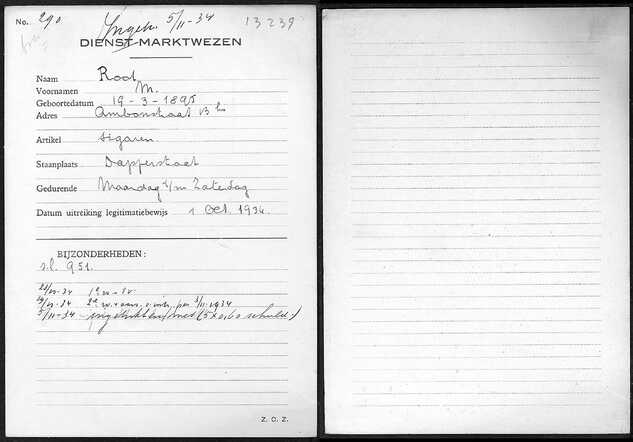 No. 290 Ingetr. 5/11-34 13239
DIENST MARKTWEZEN
Naam Root
Voornamen M.
Geboortedatum 19-3-1895
Adres Ambonstraat 13 hs
Artikel sigaren.
Staanplaats Dapperstraat
Gedurende Maandag t/m Zaterdag
Datum uitreiking legitimatiebewijs 1 Oct. 1934.
BIJZONDERHEDEN:
s.l. 951.
-34 1e w
-34 2e w per 5/11-1934
5/11-34 ingetrokken (5 x 0,60 schuld.)
Z. O. Z.